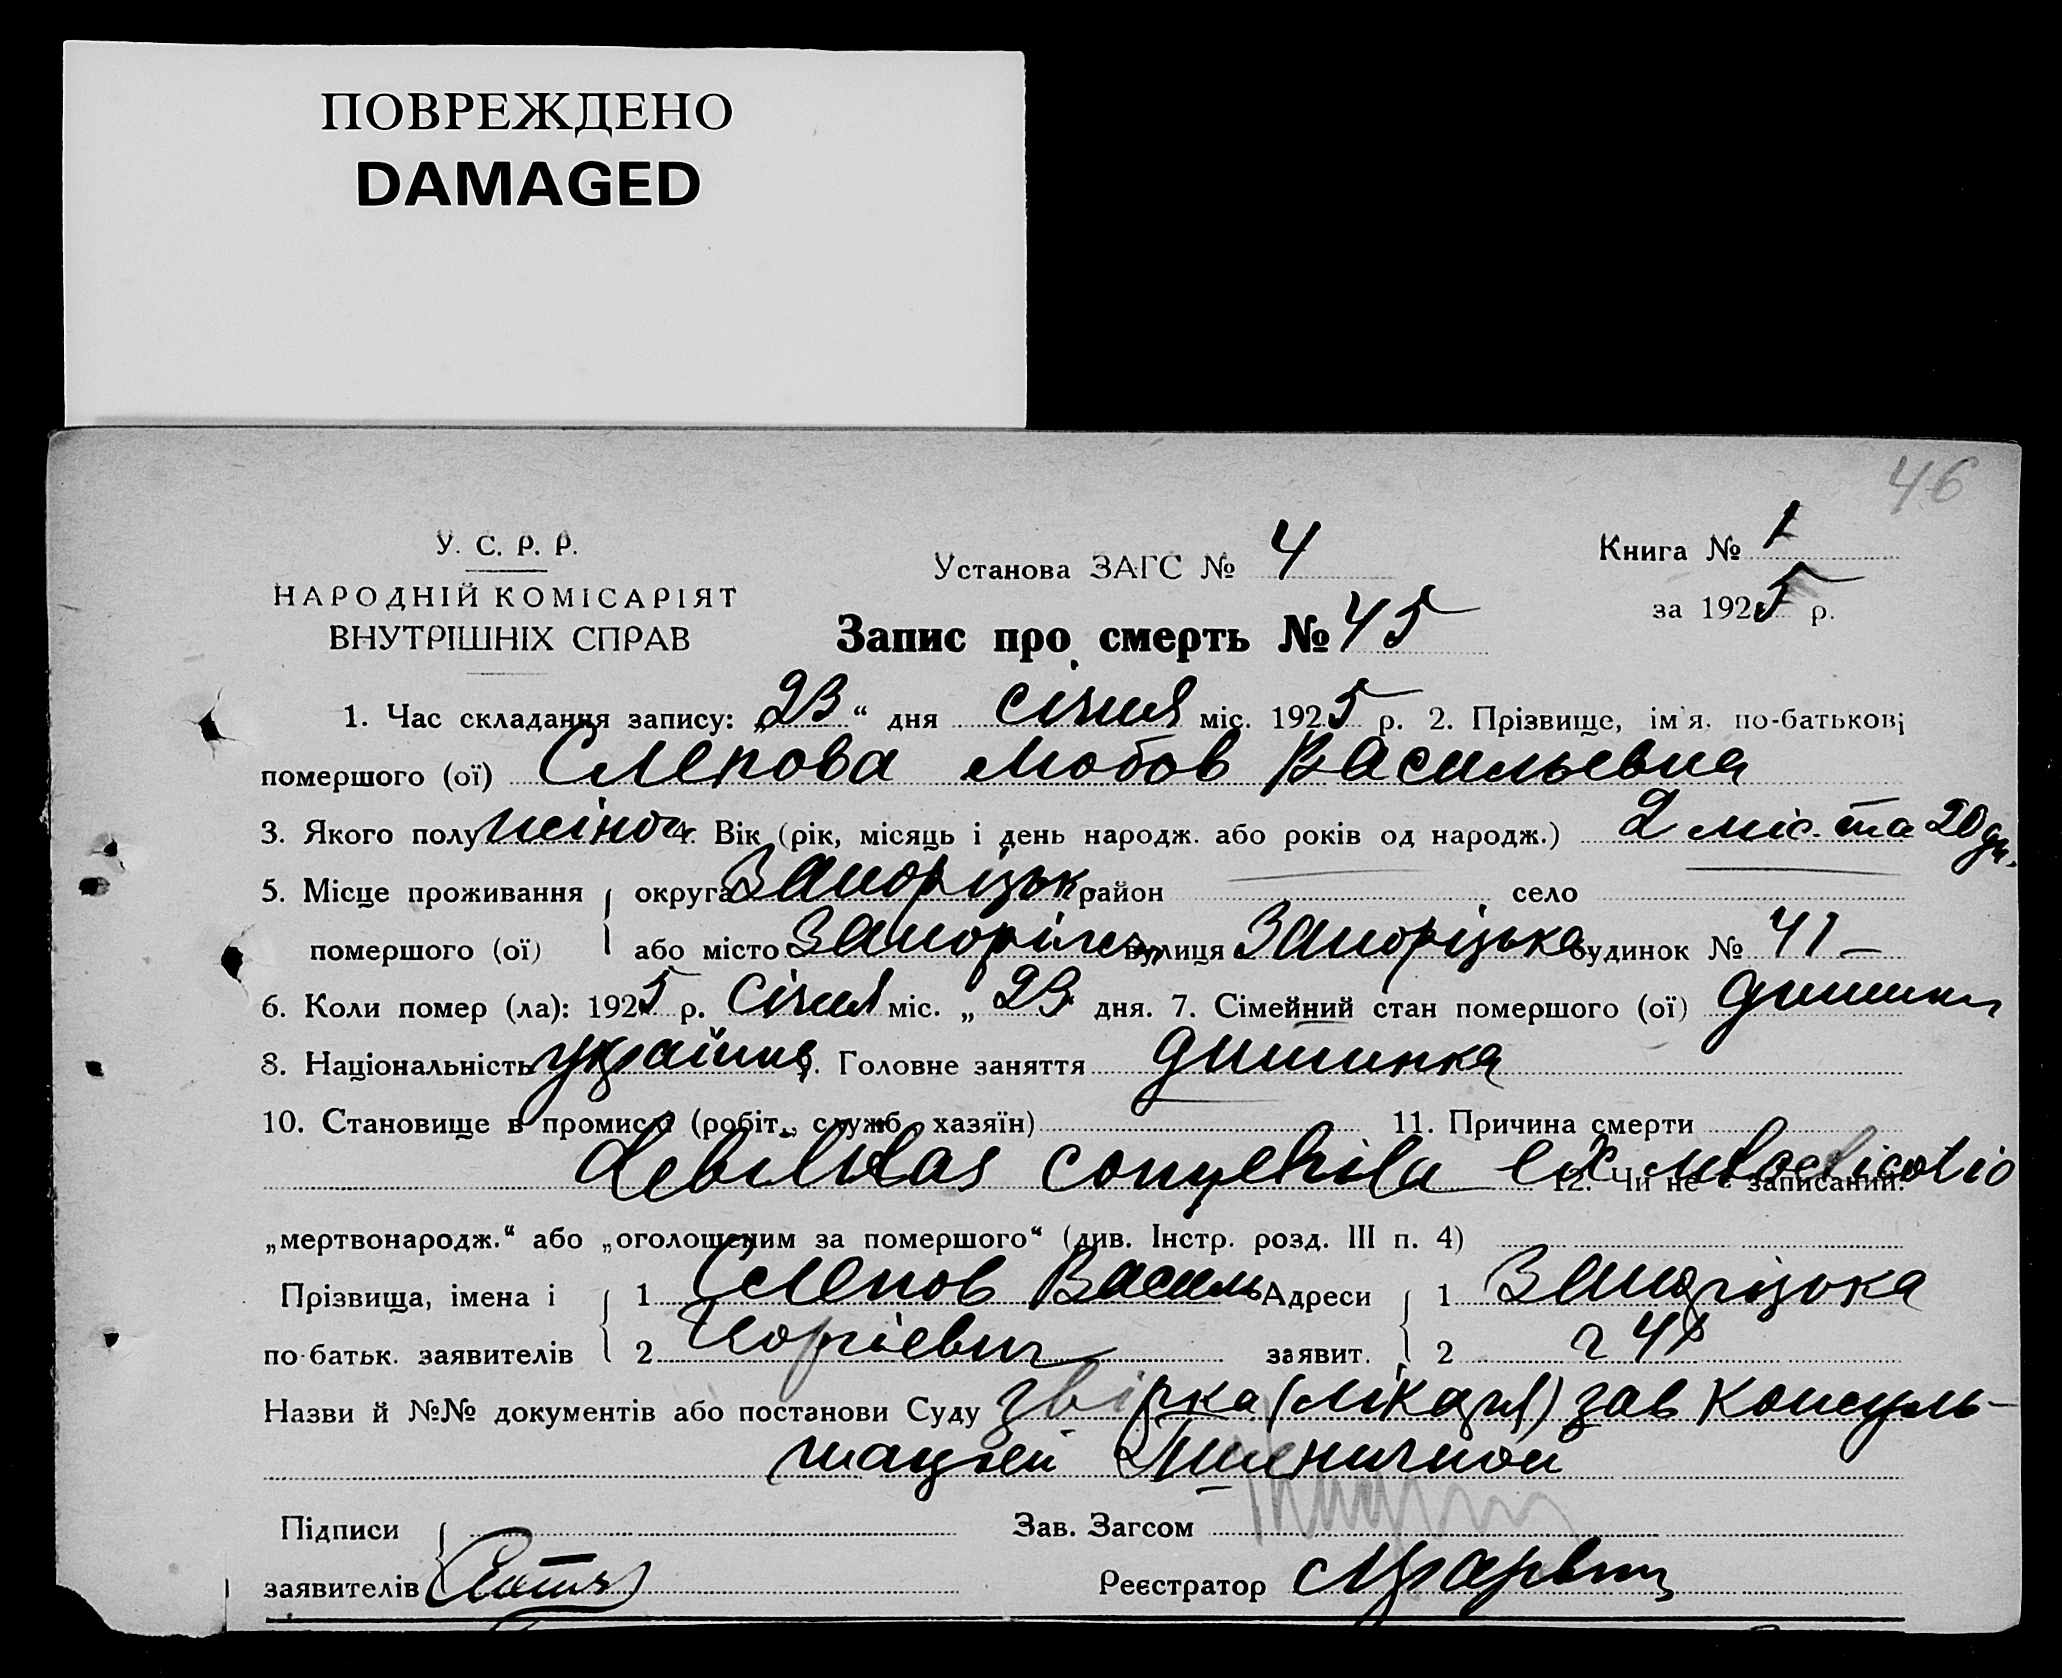 ПОВРЕЖДЕНО
DAMAGED
46
У. С. Р. Р.
НАРОДНІЙ КОМІСАРІЯТ
ВНУТРІШНІХ СПРАВ
Установа ЗАГС № 4
Книга № 1
за 1925 р.
Запис про смерть № 45
1. Час складання запису: „23“ дня січня міс. 1925 р. 2. Прізвище, ім'я, по-батькові
помершого (ої) Слепова Любов Васильевна
3. Якого полу жіноч. 4. Вік (рік, місяць і день народж. або років од народж.) 2 міс. та 20 дн.
5. Місце проживання округа Запорізьк. район село
помершого (ої) або місто Запоріжжя вулиця Запорізька будинок № 41
6. Коли помер (ла): 1925 р. Січня міс. „ 23 дня. 7. Сімейний стан помершого (ої) дитина
8. Національність україн. 9. Головне заняття дитинка
10. Становище в промислі (робіт., служб., хазяїн) 11. Причина смерти
Debilitas congenita ex 12. Чи не є записаний:
„мертвонародж.“ або „оголошеним за помершого“ (див. Інстр. розд. III п. 4)
Прізвища, імена і 1 Слепов Василь Адреси 1 Запорізька
по-батьк. заявителів 2 заявит. 2 41
Назви й №№ документів або постанови Суду (лікаря) зав консуль-
тацією Пшеничной
Підписи Зав. Загсом
заявителів Реєстратор